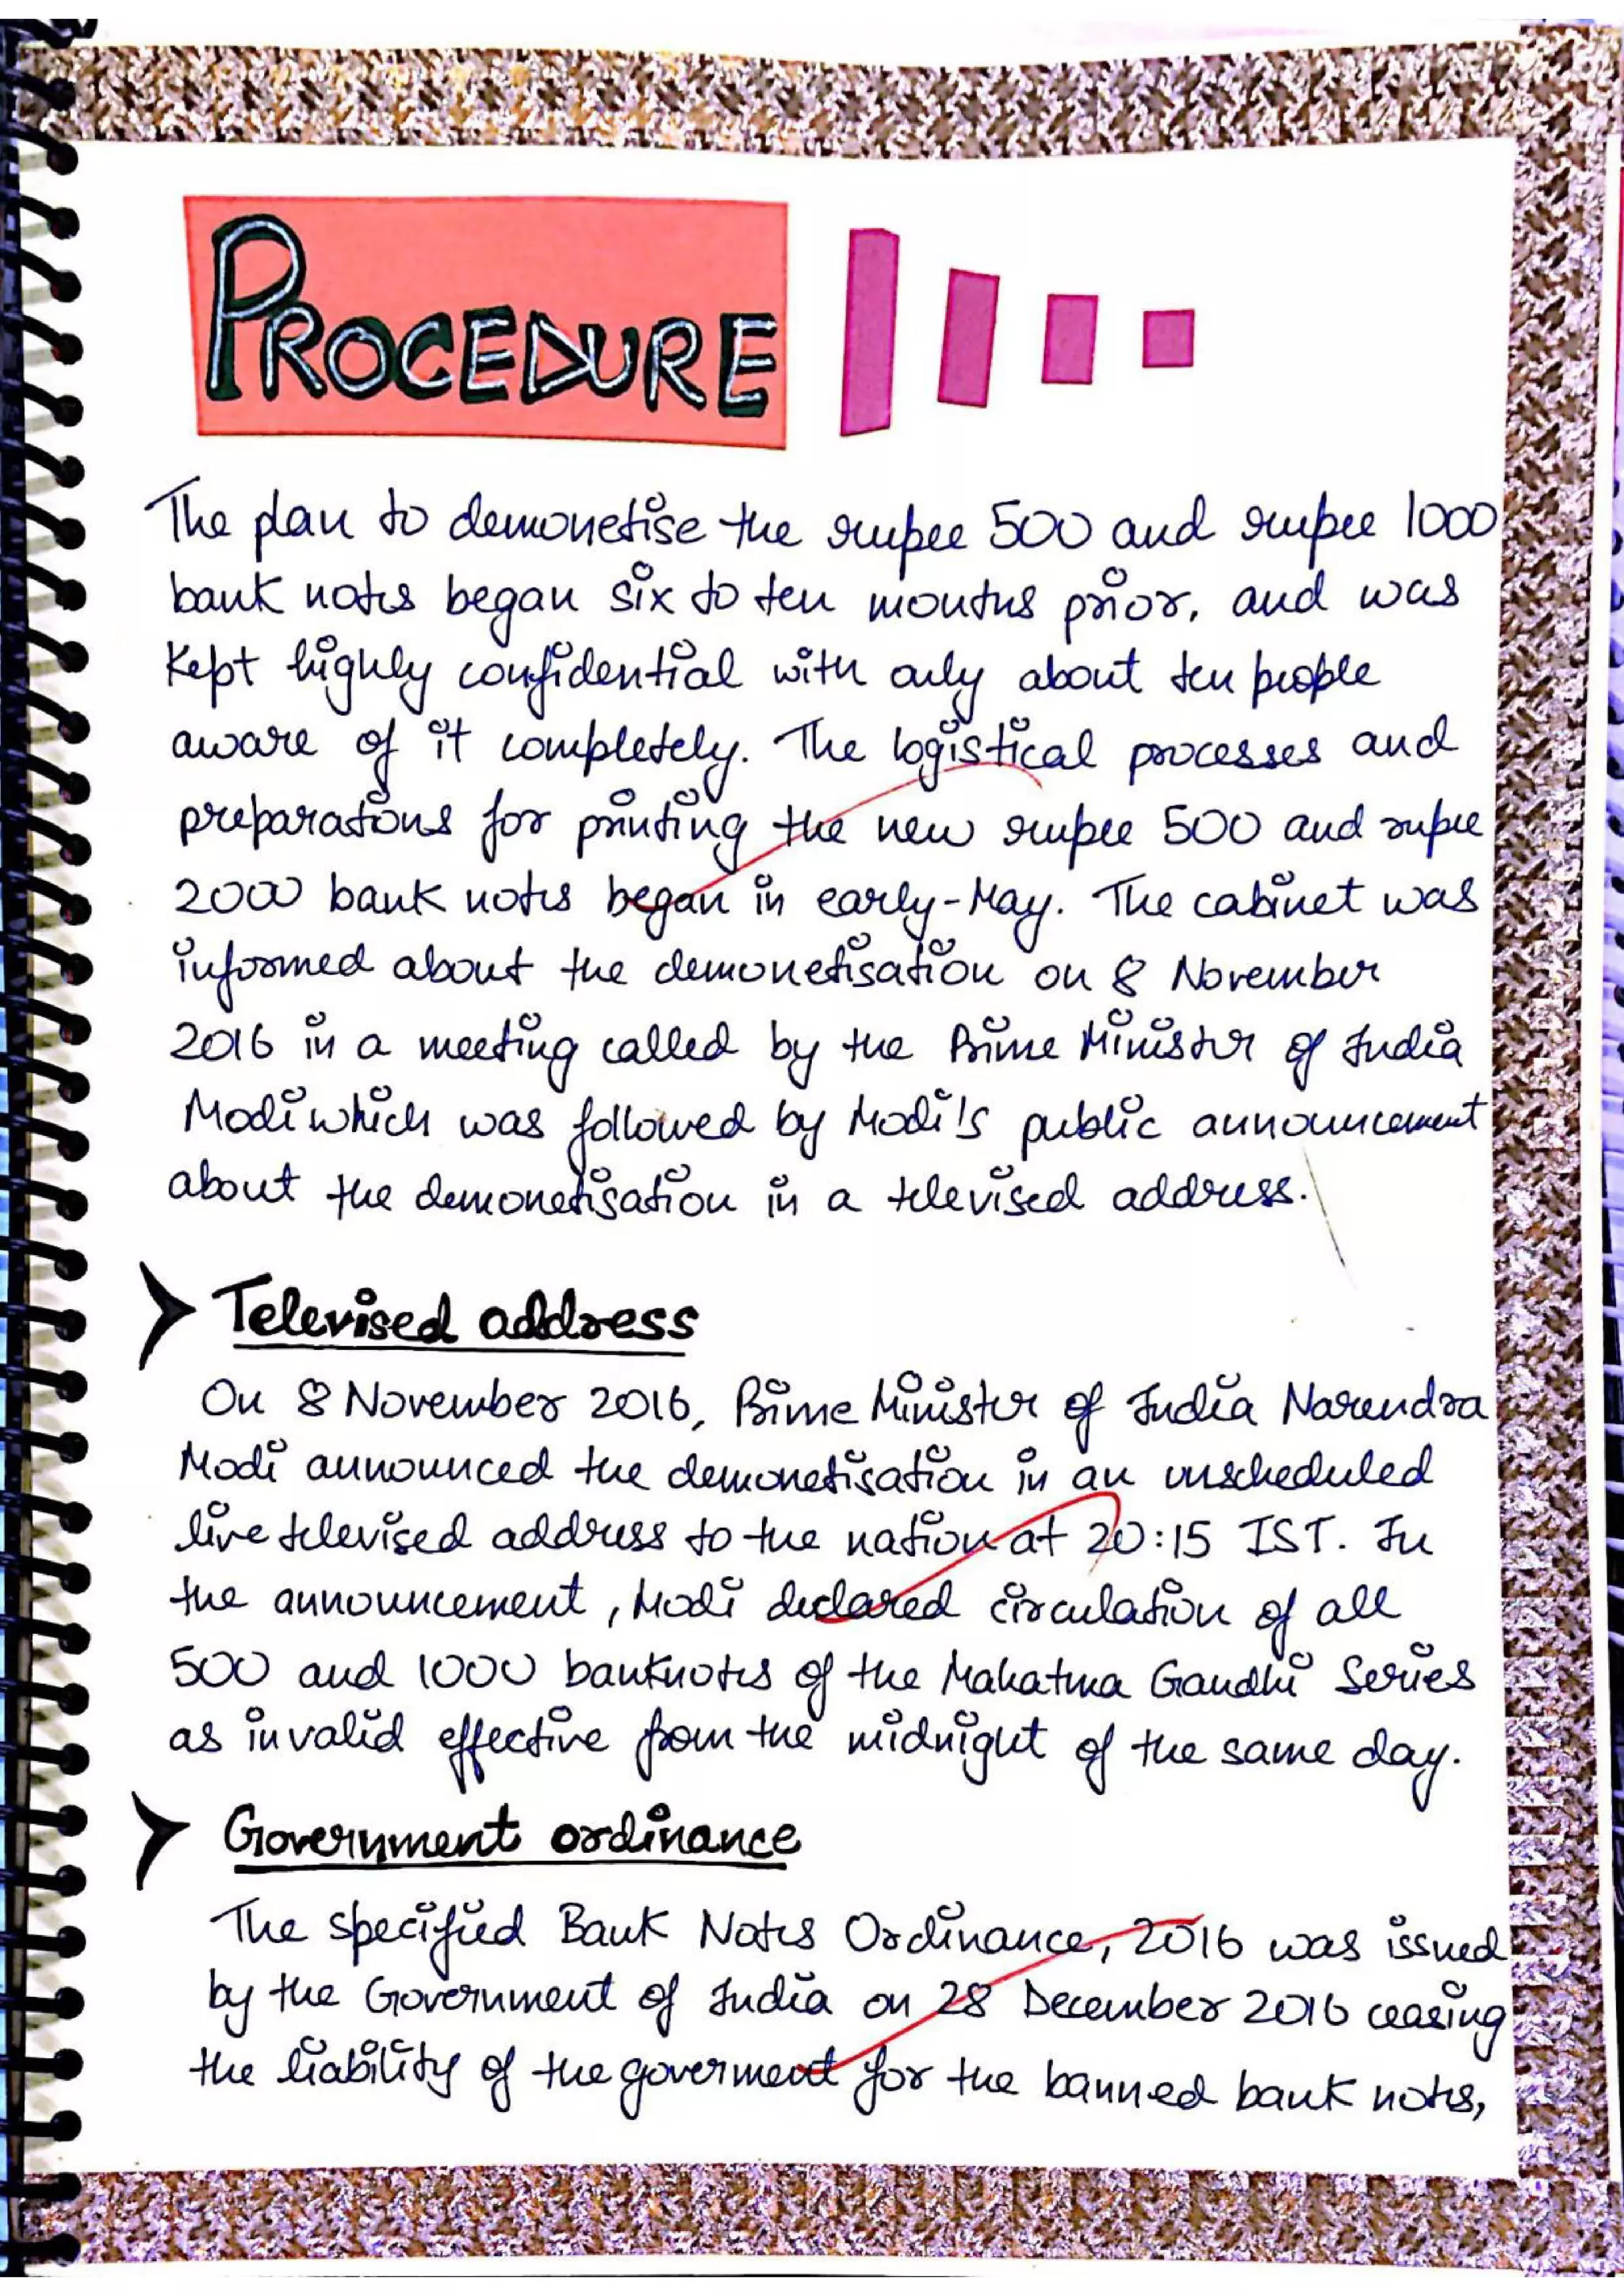 PROCEDURE
The plan to demonetise the rupee 500 and rupee 1000
bank notes began six to ten months prior, and was
kept highly confidential with only about ten people
aware of it completely. The logistical processes and
preparations for printing the new rupee 500 and rupee
2000 bank notes began in early-May. The cabinet was
informed about the demonetisation on 8 November
2016 in a meeting called by the Prime Minister of India
Modi which was followed by Modi's public announcement
about the demonetisation in a televised address.
Televised address
On 8 November 2016, Prime Minister of India Narendra
Modi announced the demonetisation in an unscheduled
live televised address to the nation at 20:15 IST. In
the announcement, Modi declared circulation of all
500 and 1000 banknotes of the Mahatma Gandhi Series
as invalid effective from the midnight of the same day.
Government ordinance
The specified Bank Notes Ordinance, 2016 was issued
by the Government of India on 28 December 2016 ceasing
the liability of the goverment for the banned bank notes,